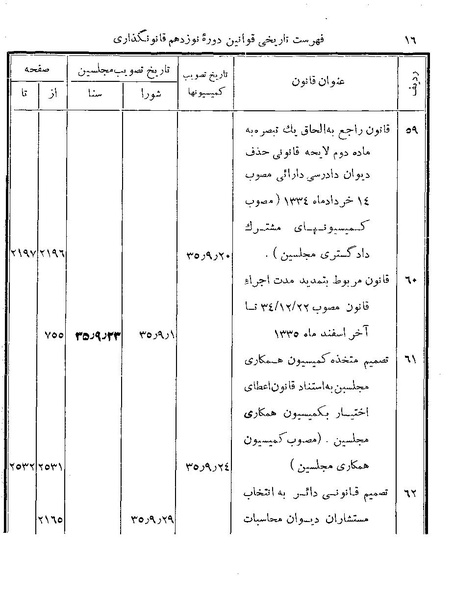 ۱۶
فهرست تاریخی قوانین دورهٔ نوزدهم قانونگذاری
ردیف
عنوان قانون
تاریخ تصویب کمیسیونها
تاریخ تصویب مجلسین
شورا
سنا
صفحه
از
تا
۵۹
قانون راجع به الحاق یك تبصره به
ماده دوم لایحه قانونی حذف
دیوان دادرسی دارائی مصوب
۱۴ خرداد ماه ۱۳۳۴ ( مصوب
کمیسیونهای مشترك
دادگستری مجلسین ) .
۳۵٫۹٫۲۰
۲۱۹۶
۲۱۹۷
۶۰
قانون مربوط بتمدید مدت اجراء
قانون مصوب ۳۴/۱۲/۲۲ تا
آخر اسفند ماه ۱۳۳۵
۳۵٫۹٫۱
۳۵٫۹٫۲۳
۷۵۵
۶۱
تصمیم متخذه کمیسیون همکاری
مجلسین به استناد قانون اعطای
اختیار بکمیسیون همکاری
مجلسین . (مصوب کمیسیون
همکاری مجلسین )
۳۵٫۹٫۲۴
۲۵۳۱
۲۵۳۲
۶۲
تصمیم قانونی دائر به انتخاب
مستشاران دیوان محاسبات
۳۵٫۹٫۲۹
۲۱۶۵